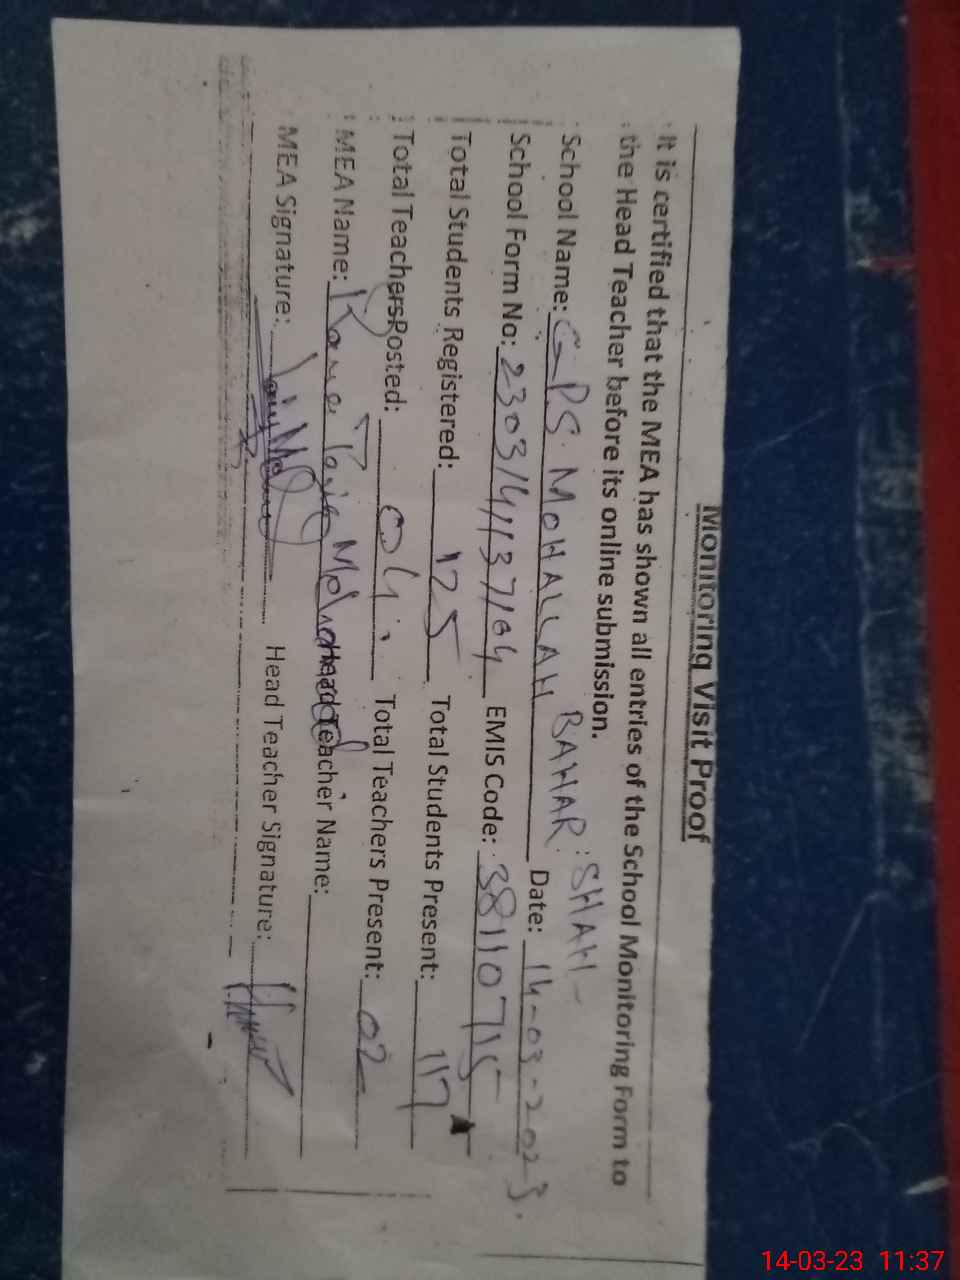 Monitoring Visit Proof
It is certified that the MEA has shown all entries of the School Monitoring Form to
the Head Teacher before its online submission.
School Name: GPS MOHALLAH BAHAR SHAH Date: 14-03-2023.
School Form No: EMIS Code: 38110715
Total Students Registered: 125 Total Students Present: 117
Total Teachers Posted: 04 Total Teachers Present: 02
MEA Name: Head Teacher Name:
MEA Signature: Head Teacher Signature:
14-03-23 11:37